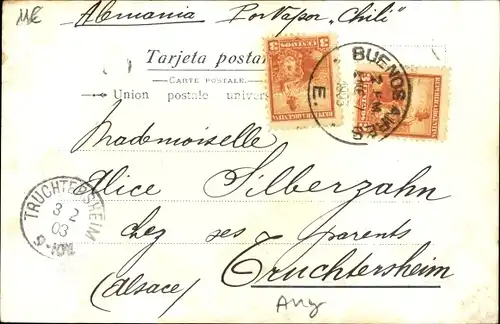 Alemania Por Vapor "Chili"
Tarjeta postal
CARTE POSTALE
Union postale univers
3
CENTAVOS
REPUBLICA ARGENTINA
REPUBLICA ARGENTINA
BUENOS AIRES
1903
E.
Mademoiselle
Alice Silberzahn
chez ses parents
Truchtersheim
(Alsace)
TRUCHTERSHEIM
3 2
03